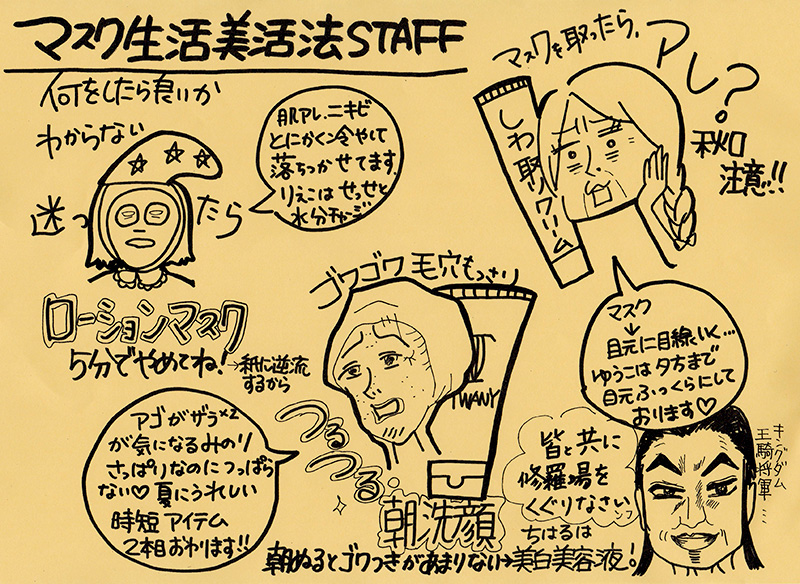 マスク生活美活法STAFF
何をしたら良いか
わからない
迷ったら
肌アレ、ニキビ
とにかく冷やして
落ちつかせてます。
りえこはせっせと
水分チャージ
ローションマスク
5分でやめてね!→紙に逆流
するから
マスクを取ったら、
アレ?
秋口
注意!!
しわ取りクリーム
マスク
↓
目元に目線いく…
ゆうこは夕方まで
目元ふっくらにして
おります♡
ゴワゴワ毛穴もっさり
TWANY
つるつる
アゴがザラ×2
が気になるみのり
さっぱりなのにつっぱら
ない♡夏にうれしい
時短アイテム
2本目おわります!!
朝洗顔
朝ぬるとゴワつきがあまりない→美白美容液!
皆と共に
修羅場を
くぐりなさい
ンフ
ちはるは
キングダム
王騎将軍…